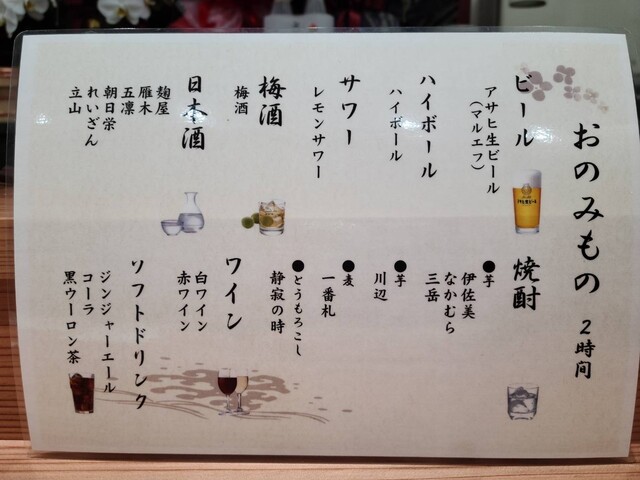 おのみもの 2時間
ビール
アサヒ生ビール
(マルエフ)
ハイボール
ハイボール
サワー
レモンサワー
梅酒
梅酒
日本酒
麹屋
雁木
五凛
朝日栄
れいざん
立山
焼酎
●芋
伊佐美
なかむら
三岳
●芋
川辺
●麦
一番札
●とうもろこし
静寂の時
ワイン
白ワイン
赤ワイン
ソフトドリンク
ジンジャーエール
コーラ
黒ウーロン茶